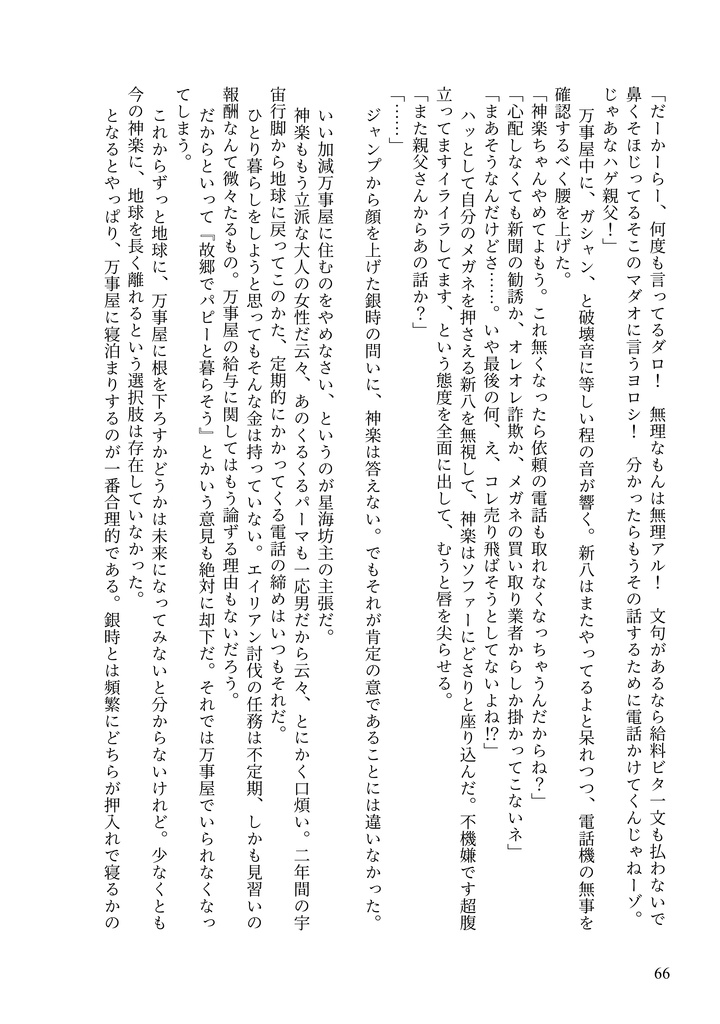 「だーかーらー、何度も言ってるダロ！　無理なもんは無理アル！　文句があるなら給料ビタ一文も払わないで
鼻くそほじってるそこのマダオに言うヨロシ！　分かったらもうその話するために電話かけてくんじゃねーゾ。
じゃあなハゲ親父！」
　万事屋中に、ガシャン、と破壊音に等しい程の音が響く。新八はまたやってるよと呆れつつ、電話機の無事を
確認するべく腰を上げた。
「神楽ちゃんやめてよもう。これ無くなったら依頼の電話も取れなくなっちゃうんだからね？」
「心配しなくても新聞の勧誘か、オレオレ詐欺か、メガネの買い取り業者からしか掛かってこないネ」
「まあそうなんだけどさ……。いや最後の何、え、コレ売り飛ばそうとしてないよね⁉」
　ハッとして自分のメガネを押さえる新八を無視して、神楽はソファーにどさりと座り込んだ。不機嫌です超腹
立ってますイライラしてます、という態度を全面に出して、むうと唇を尖らせる。
「また親父さんからあの話か？」
「……」
　ジャンプから顔を上げた銀時の問いに、神楽は答えない。でもそれが肯定の意であることには違いなかった。
　いい加減万事屋に住むのをやめなさい、というのが星海坊主の主張だ。
　神楽ももう立派な大人の女性だ云々、あのくるくるパーマも一応男だから云々、とにかく口煩い。二年間の宇
宙行脚から地球に戻ってこのかた、定期的にかかってくる電話の締めはいつもそれだ。
　ひとり暮らしをしようと思ってもそんな金は持っていない。エイリアン討伐の任務は不定期、しかも見習いの
報酬なんて微々たるもの。万事屋の給与に関してはもう論ずる理由もないだろう。
　だからといって『故郷でパピーと暮らそう』とかいう意見も絶対に却下だ。それでは万事屋でいられなくなっ
てしまう。
　これからずっと地球に、万事屋に根を下ろすかどうかは未来になってみないと分からないけれど。少なくとも
今の神楽に、地球を長く離れるという選択肢は存在していなかった。
　となるとやっぱり、万事屋に寝泊まりするのが一番合理的である。銀時とは頻繁にどちらが押入れで寝るかの
66